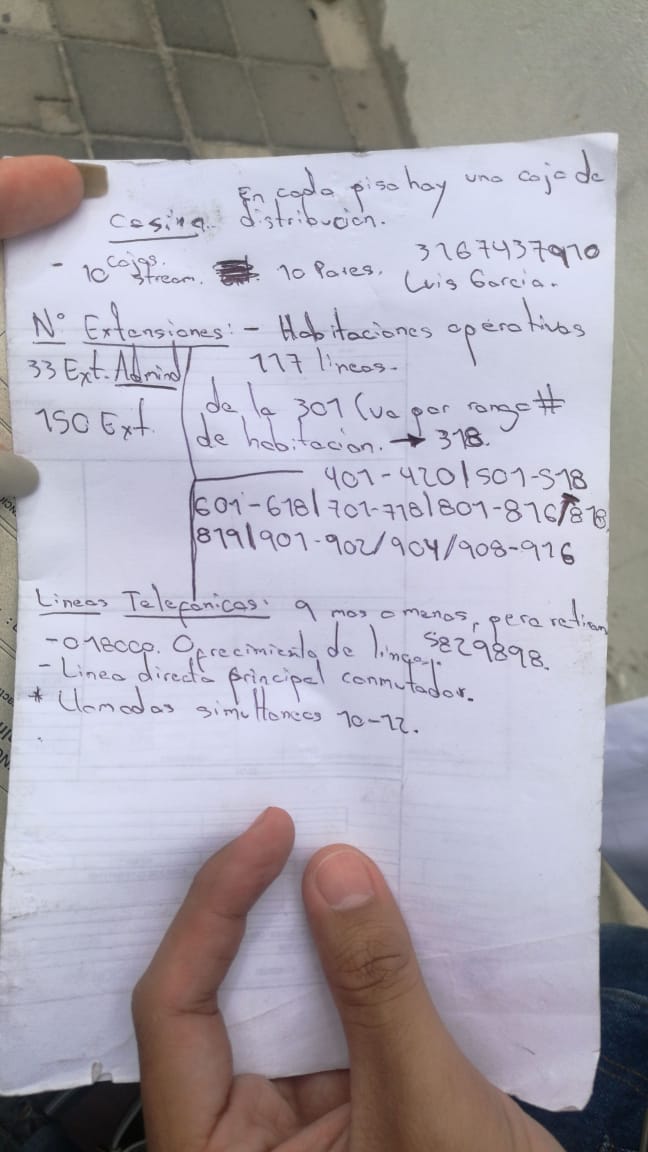 En cada piso hay una caja de
Casina. distribucion.
- 10 Cajas Stream. 10 Pares. 3167437910
Luis Garcia.
N° Extensiones: - Habitaciones operativas
33 Ext. Admind 117 lineas-
150 Ext. de la 301 (va por rango #
de habitacion. → 318.
401-420/501-518
601-618/701-718/801-816/818
819/901-902/904/908-916
Lineas Telefónicas: 9 mas o menos, pero retiran
-018000. Ofrecimiento de lineas. 5829898.
- Linea directa principal conmutador.
* Llamadas simultaneas 10-12.